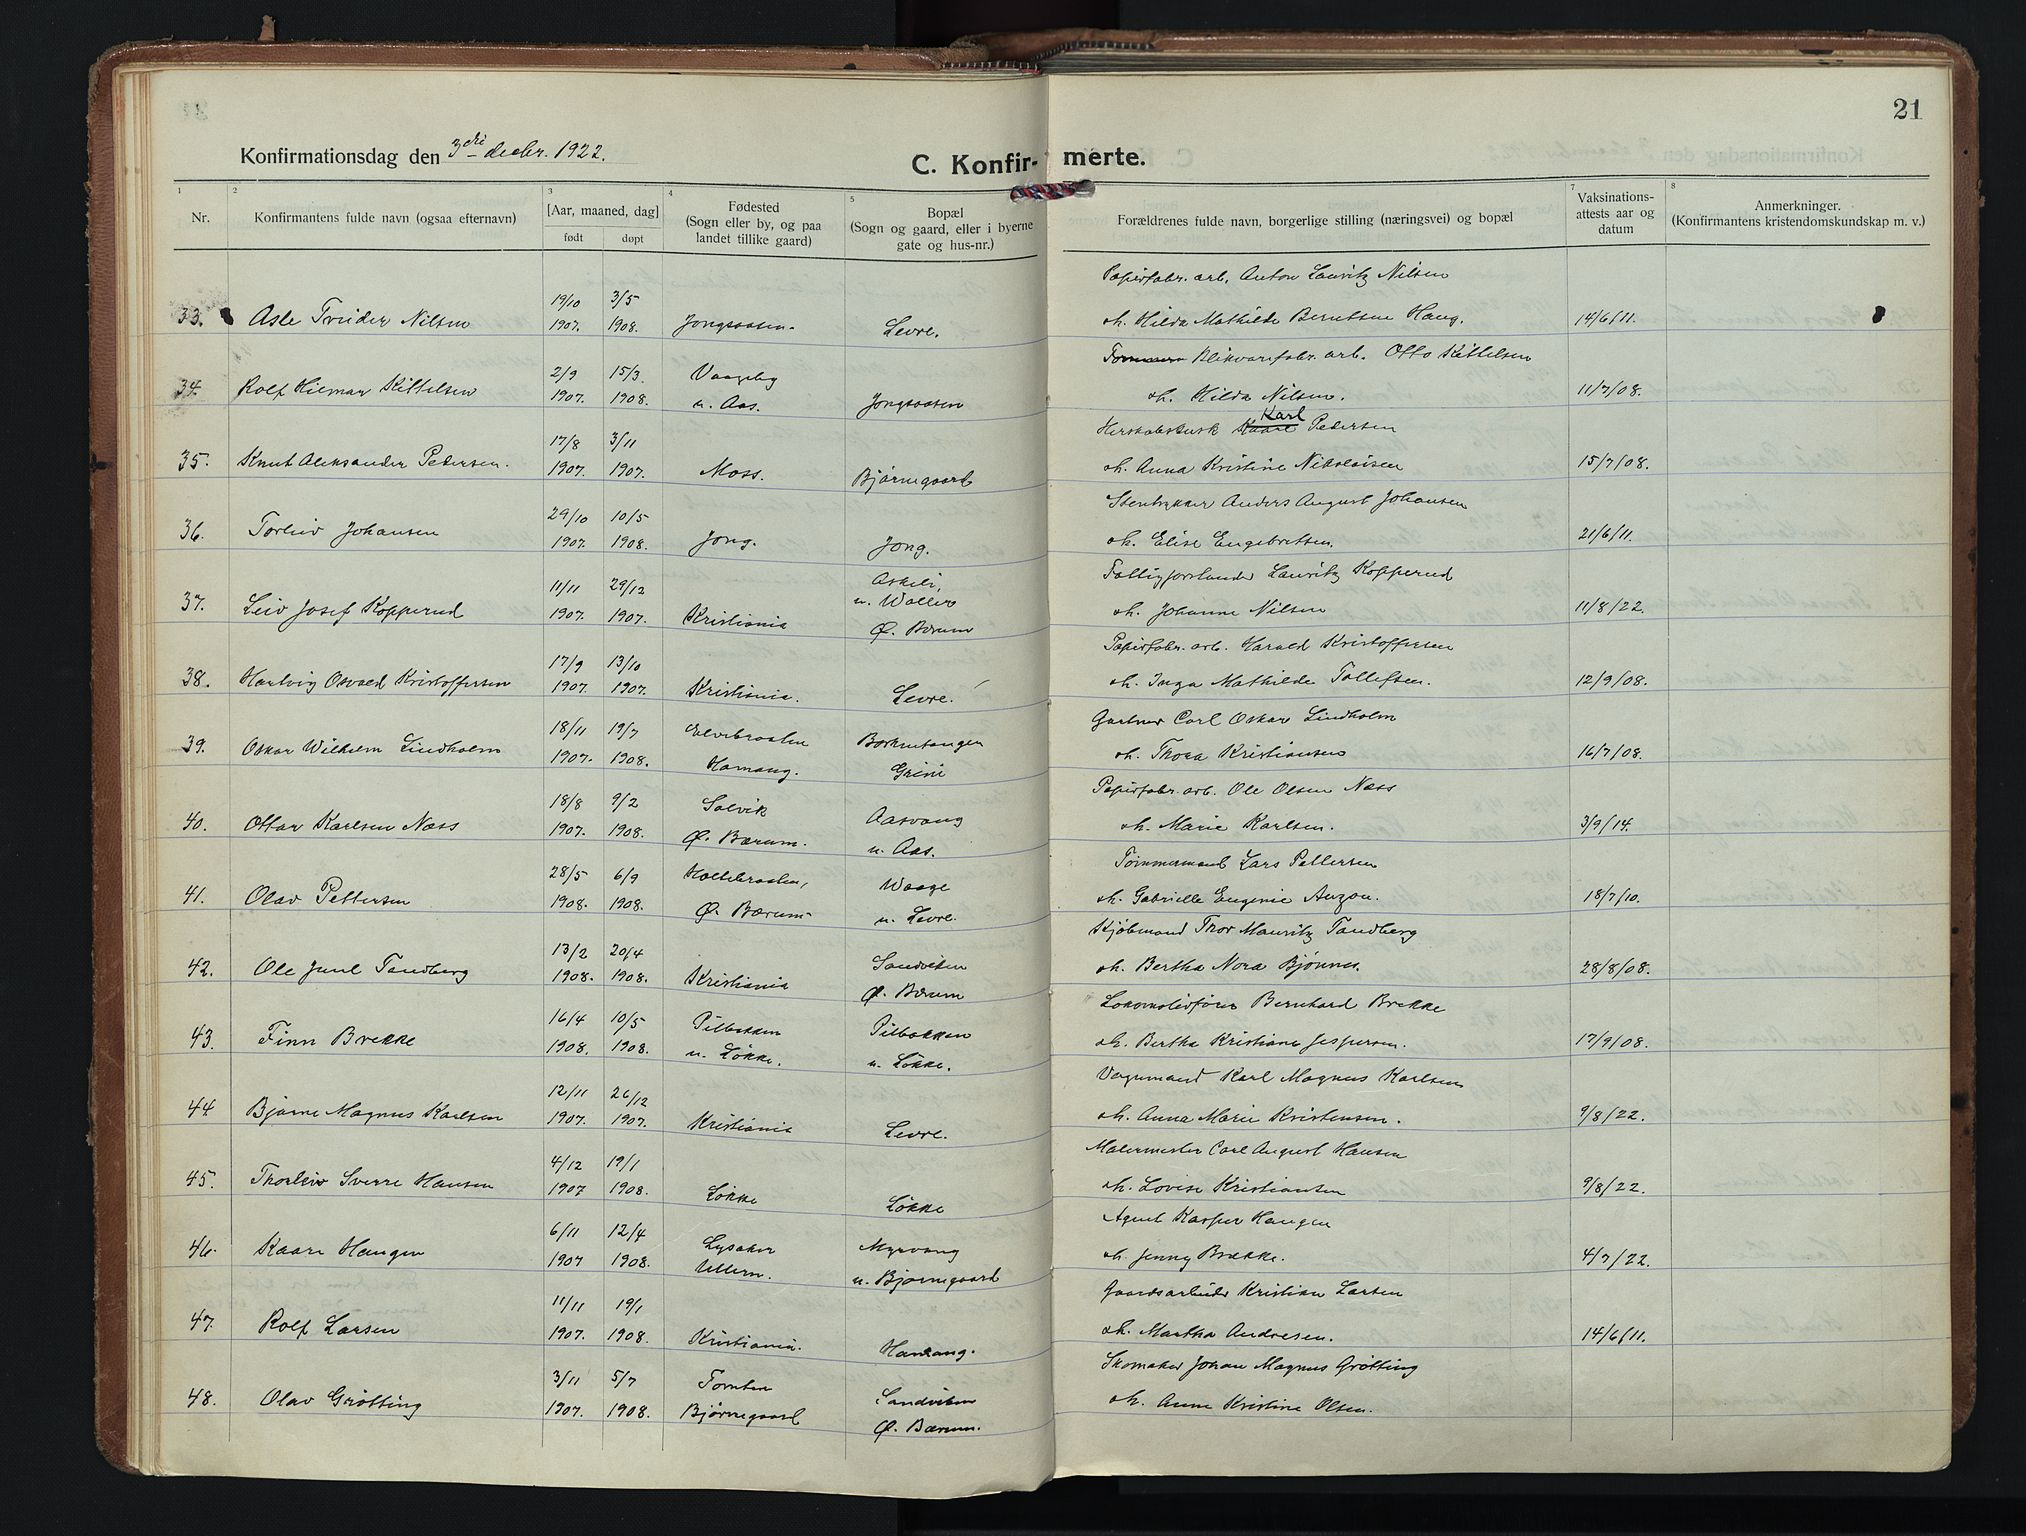 21
Konfirmationsdag den 3die decbr. 1922.
C. Konfirmerte.
1 2 3 4 5 7 8
Nr.
Konfirmantens fulde navn (ogsaa efternavn)
[Aar, maaned, dag]
født døpt
Fødested
(Sogn eller by, og paa
landet tillike gaard)
Bopæl
(Sogn og gaard, eller i byerne
gate og hus-nr.)
Forældrenes fulde navn, borgerlige stilling (næringsvei) og bopæl
Vaksinations-
attests aar og
datum
Anmerkninger.
(Konfirmantens kristendomskundskap m. v.)
19/10 3/5 Papirfabr. arb. Anton Lauritz Nilsen
33. Asle Nilsen 1907. 1908. Jongsaasen. Levre. oh. Hilda Mathilde Berntsen Haug. 14/6/11.
2/9 15/3. Vaageby Blikvarefabr. arb. Otto Kittelsen
34. Rolf Hilmar Kittelsen 1907. 1908. u. Aas. Jongsaasen oh. Hilda Nilsen. 11/7/08.
17/8 3/11 Karl Pedersen
35. Knut Aleksander Pedersen. 1907. 1907. Moss. Bjørnegaard oh. Anna Kristine Nikolaisen 15/7/08.
29/10 10/5 Anders August Johansen
36. Torleiv Johansen 1907. 1908. Jong. Jong. oh. Elise Engebretsen. 21/6/11.
11/11 29/12 Askeli, Fattigforstander Lauritz Kopperud
37. Leiv Josef Kopperud 1907. 1907. Kristiania u. Waller Ø. Bærum oh. Johanne Nilsen 11/8/22.
17/9 13/10 Papirfabr. arb. Harald Kristoffersen
38. Hartvig Osvald Kristoffersen 1907. 1907. Kristiania. Levre. oh. Inga Mathilde Tollefsen. 12/9/08.
18/11 19/7 Elvebraaten Gartner Carl Oskar Lindholm
39. Oskar Wilhelm Lindholm 1907. 1908. Hamang. Grini oh. Thora Kristiansen 16/7/08.
18/8 9/2 Solvik Aasvang Papirfabr. arb. Ole Olsen Næss
40. Ottar Karlsen Næss 1907. 1908. Ø. Bærum. u. Aas. oh. Marie Karlsen. 3/9/14.
28/5 6/9 Holtebraaten, Waage Tømmermand Lars Pettersen
41. Olav Pettersen 1908. 1908. Ø. Bærum. u. Levre. oh. Gabrielle Eugenie Anzon. 18/7/10.
13/2 20/4 Sandviken Kjøbmand Thor Mauritz Tandberg
42. Ole Juul Tandberg 1908. 1908. Kristiania Ø. Bærum oh. Bertha Nora Bjønnes. 28/8/08.
16/4 10/5 Pilbakken Pilbakken Lokomotivfører Bernhard Brekke
43. Finn Brekke 1908. 1908. u. Løkke. u. Løkke. oh. Bertha Kristiane Jespersen. 17/9/08.
12/11 26/12 Vognmand Karl Magnus Karlsen
44 Bjarne Magnus Karlsen 1907. 1907. Kristiania Levre. oh. Anna Marie Kristensen. 9/8/22.
4/12 19/1 Malermester Carl August Hansen
45. Thorleiv Sverre Hansen 1907 1908. Løkke Løkke oh. Lovise Kristiansen 9/8/22.
6/11 12/4 Lysaker Myrvang Agent Kasper Haugen
46. Kaare Haugen 1907 1908. Ullern. u. Bjørnegaard oh. Jenny Brekke. 4/7/22.
11/11 19/1 Gaardsarbeider Kristian Larsen
47. Rolf Larsen 1907. 1908. Kristiania. Hamang. oh. Martha Andresen. 14/6/11.
3/11 5/7 Tomten Sandviken Skomaker Johan Magnus Grøtting
48. Olav Grøtting 1907. 1908. Bjørnegaard Ø. Bærum. oh. Anne Kristine Olsen.